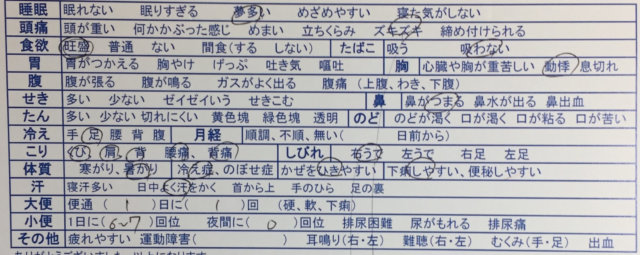 睡眠 眠れない 眠りすぎる 夢多い めざめやすい 寝た気がしない
頭痛 頭が重い 何かかぶった感じ めまい 立ちくらみ ズキズキ 締め付けられる
食欲 旺盛 普通 ない 間食(する しない) たばこ 吸う 吸わない
胃 胃がつかえる 胸やけ げっぷ 吐き気 嘔吐 胸 心臓や胸が重苦しい 動悸 息切れ
腹 腹が張る 腹が鳴る ガスがよく出る 腹痛 (上腹、わき、下腹)
せき 多い 少ない ゼイゼイいう せきこむ 鼻 鼻がつまる 鼻水が出る 鼻出血
たん 多い 少ない 切れにくい 黄色塊 緑色塊 透明 のど のどが渇く 口が渇く 口が粘る 口が苦い
冷え 手 足 腰 背 腹 月経 順調、不順、無い( 日前から)
こり 首、肩、背 腰痛、背痛 しびれ 右うで 左うで 右足 左足
体質 寒がり、暑がり 冷え症、のぼせ症 かぜをひきやすい 下痢しやすい、便秘しやすい
汗 寝汗多い 日中よく汗をかく 首から上 手のひら 足の裏
大便 便通( 1 )日に( 1 )回 (硬、軟、下痢)
小便 1日に(6~7)回位 夜間に( 0 )回位 排尿困難 尿がもれる 排尿痛
その他 疲れやすい 運動障害( ) 耳鳴り(右・左) 難聴(右・左) むくみ(手・足) 出血